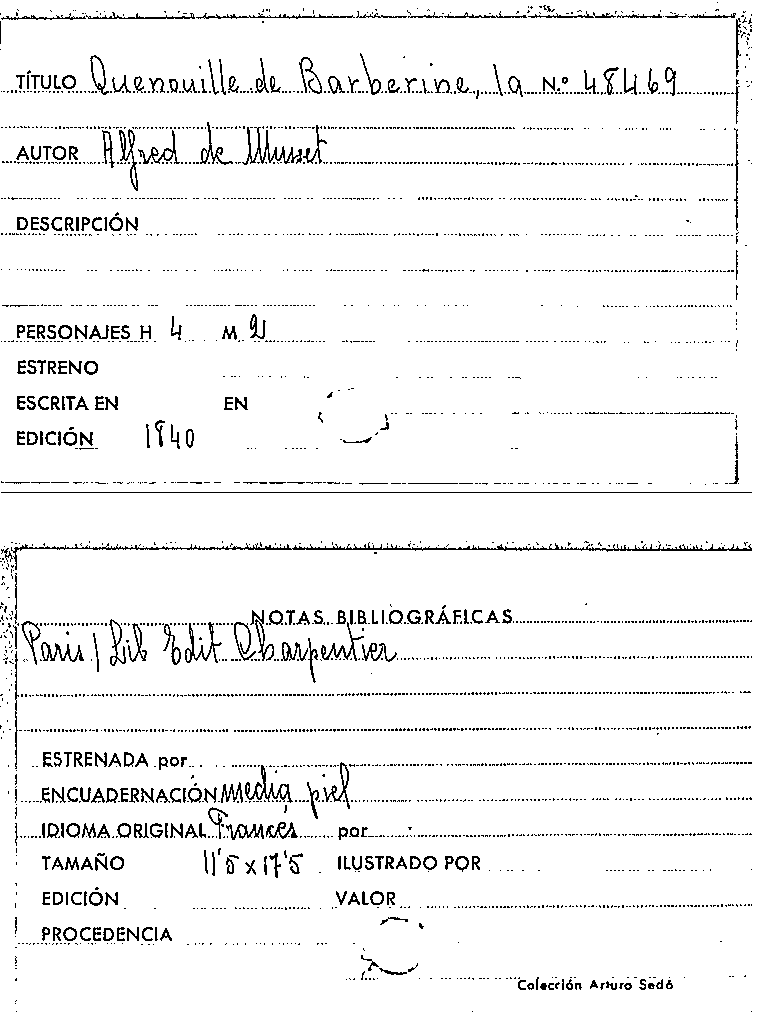 TÍTULO Quenouille de Barberine, la N.º 48469
AUTOR Alfred de Musset
DESCRIPCIÓN
PERSONAJES H 4 M 2
ESTRENO
ESCRITA EN EN
EDICIÓN 1840
NOTAS BIBLIOGRÁFICAS
Paris / Lib Edit Charpentier
ESTRENADA por
ENCUADERNACIÓN media piel
IDIOMA ORIGINAL Francés por
TAMAÑO 11'5 x 17'5 ILUSTRADO POR
EDICIÓN VALOR
PROCEDENCIA
Colección Arturo Sedó